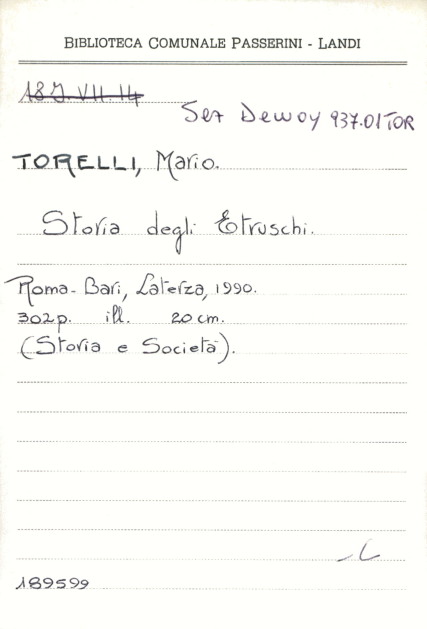 BIBLIOTECA COMUNALE PASSERINI - LANDI
Ser Dewoy 937.01 TOR
TORELLI, Mario.
Storia degli Etruschi.
Roma-Bari, Laterza, 1990.
302p. ill. 20 cm.
(Storia e Società).
189599